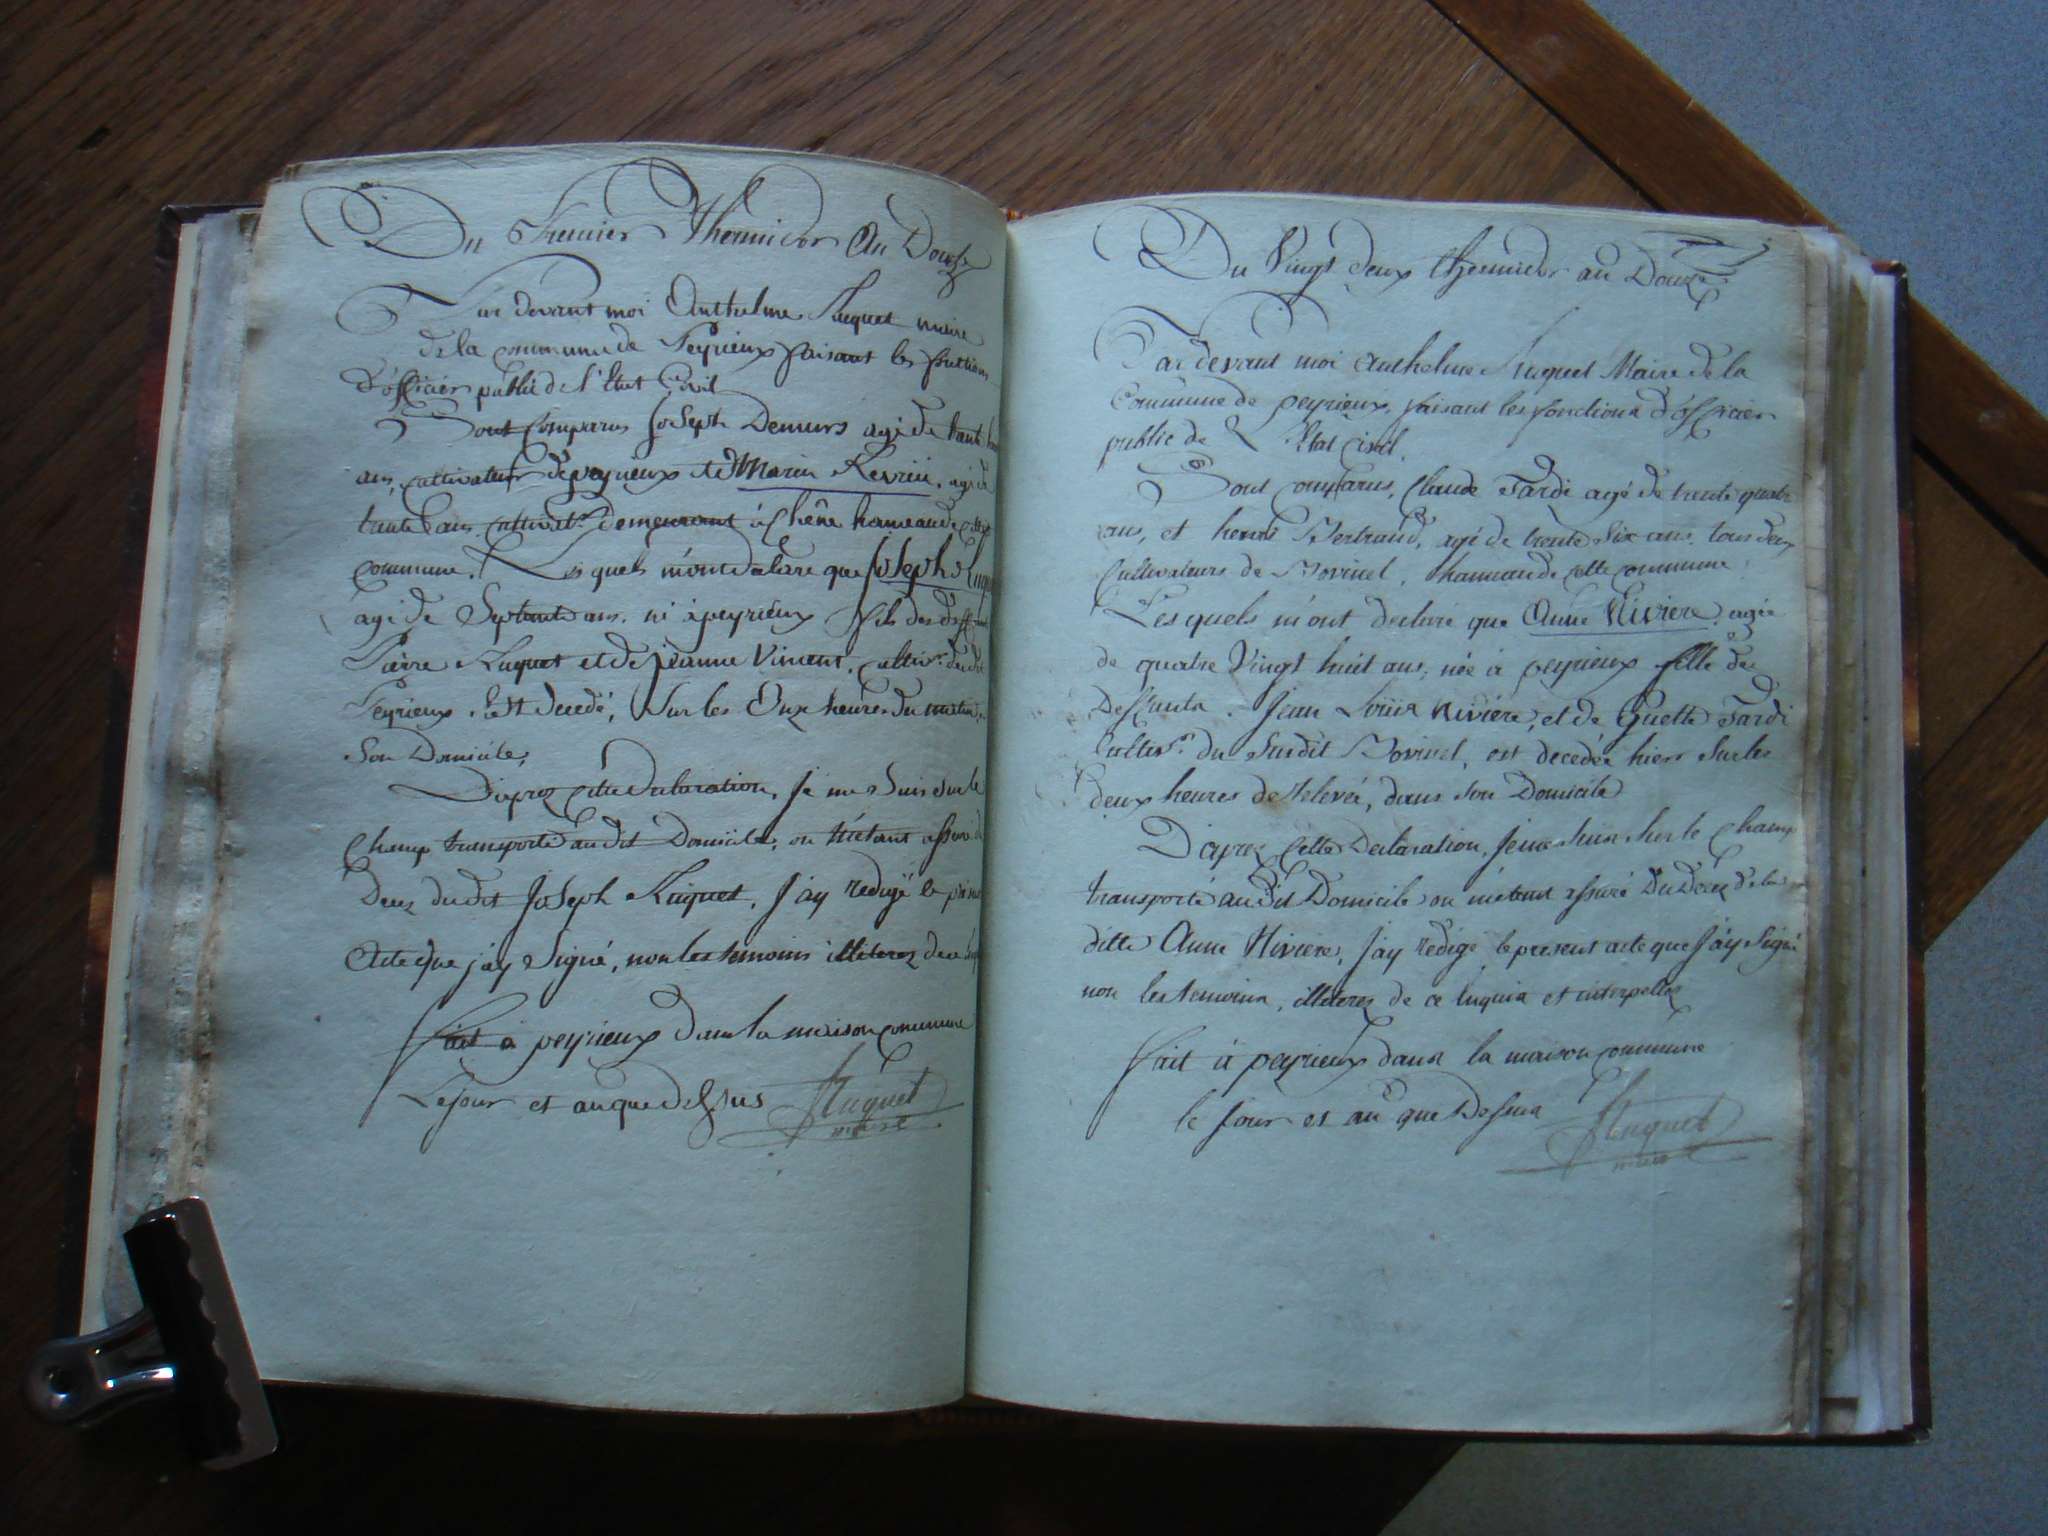 Du Premier Thermidor An Douze
Par devant moi Anthelme Huguet maire
de la commune de Peyrieux faisant les fonctions
d'officier public de l'Etat Civil
Sont comparus Joseph Demurs agé de trente
ans, cultivateur de peyrieux et Marin agé de
trente ans cultivatr. demeurant à Chêne hameau de cette
commune. Les quels m'ont declare que Joseph Huguet
agé de Septante ans. né à peyrieux fils des deffunts
Pierre Huguet et de jeanne Vincent, cultivr. dudit
Peyrieux. Est decedé, Sur les Onze heures du matin,
Son Domicile,
D'aprez cette declaration, Je me Suis Sur le
Champ transporté au dit Domicile, ou m'étant assuré du
Deces dudit Joseph Huguet, J'ay redigé le présent
Acte que j'ay Signé, non les temoins illiterez de ce
fait à peyrieux dans la maison commune
Le Jour et an que dessus Huguet
maire
Du Vingt deux thermidor an Douze
Par devant moi Anthelme Huguet Maire de la
Commune de peyrieux, faisant les fonctions d'officier
public de L'Etat Civil.
Sont comparus, Claude Tardi agé de trente quatre
ans, et henri Bertrand, agé de trente Six ans, tous deux
Cultivateurs de Bovinel, hameau de cette commune
Les quels m'ont declaré que Anne Riviere, agée
de quatre Vingt huit ans, née à peyrieux fille de
Deffunts Jean Louis Riviere, et de Guette Tardi
Cultivrs. du Susdit Bovinel, est decedée hiers Sur les
deux heures de Relevée, dans Son Domicile
D'aprez Cette Declaration, Je me Suis Sur le Champ
transporté au dit Domicile ou m'étant assuré Du Décez de la
ditte Anne Riviere, J'ay redigé le present acte que J'ay Signé
non les temoins, illiterez de ce Enquis et interpellez
fait à peyrieux dans la maison commune
le Jour et an que Dessus Huguet
maire